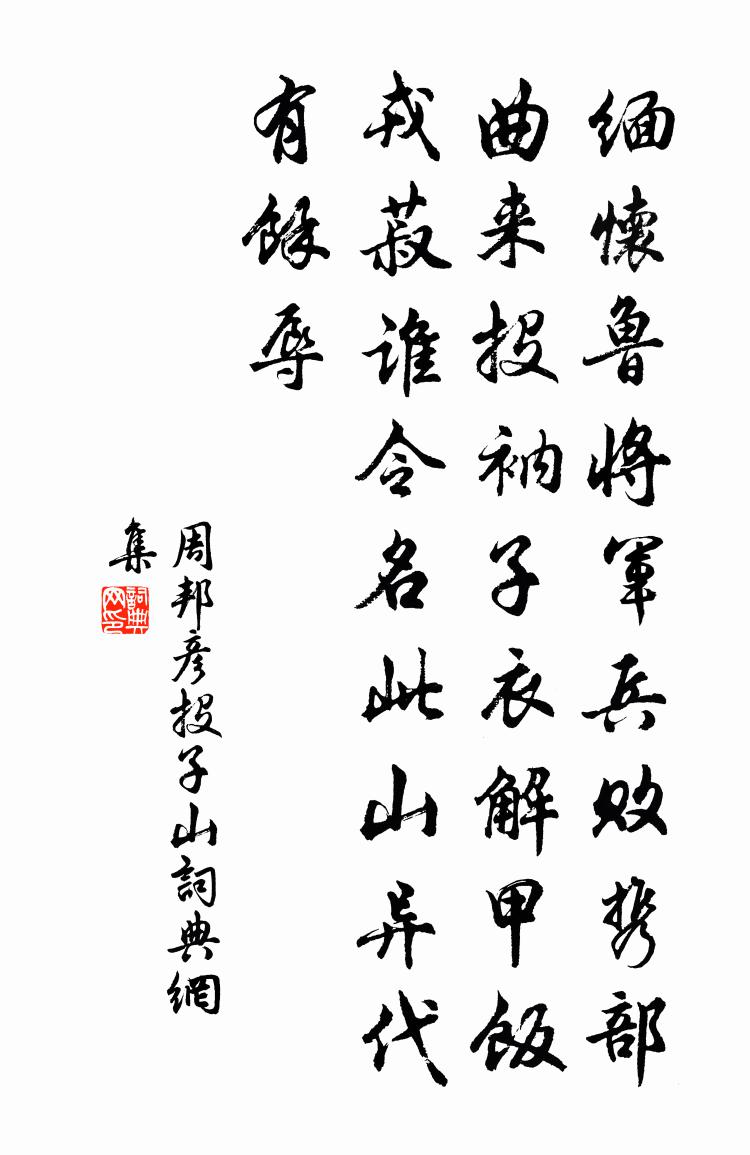 缅懷魯將軍兵敗携部
曲来投衲子衣解甲飯
戎菽谁令名此山异代
有餘辱
周邦彦投子山詞典網
集
詞典
网印